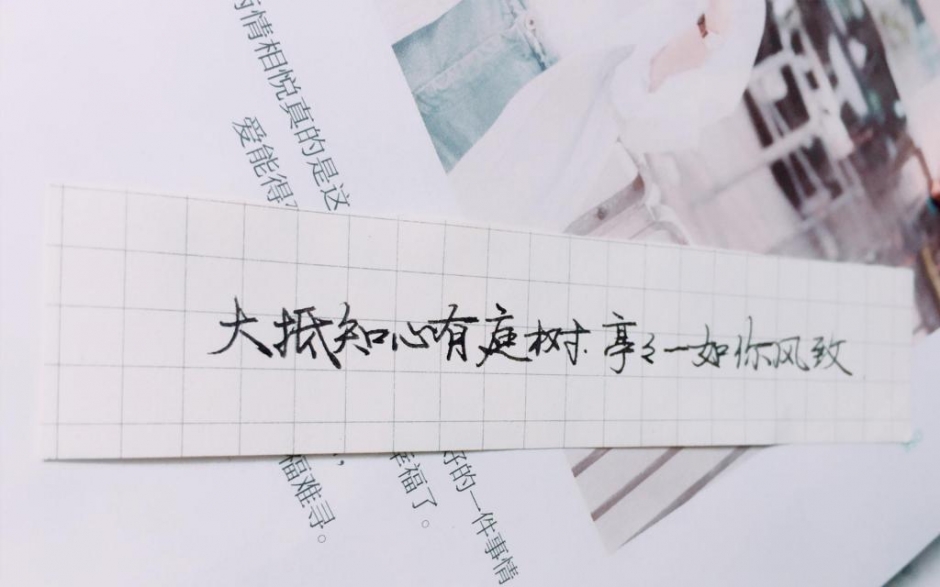 两情相悦真的是这
爱能得
大抵知心有庭树.亭々一如你风致
福难寻。
幸福了。
好的一件事情